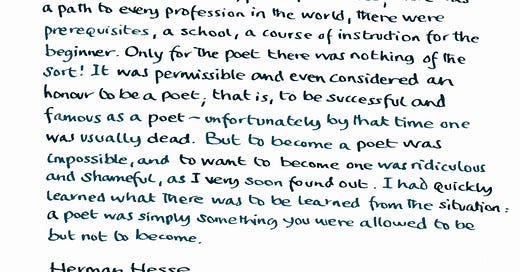 a path to every profession in the world, there were
prerequisites, a school, a course of instruction for the
beginner. Only for the poet there was nothing of the
sort! It was permissible and even considered an
honour to be a poet; that is, to be successful and
famous as a poet – unfortunately by that time one
was usually dead. But to become a poet was
impossible, and to want to become one was ridiculous
and shameful, as I very soon found out. I had quickly
learned what there was to be learned from the situation:
a poet was simply something you were allowed to be
but not to become.
Herman Hesse